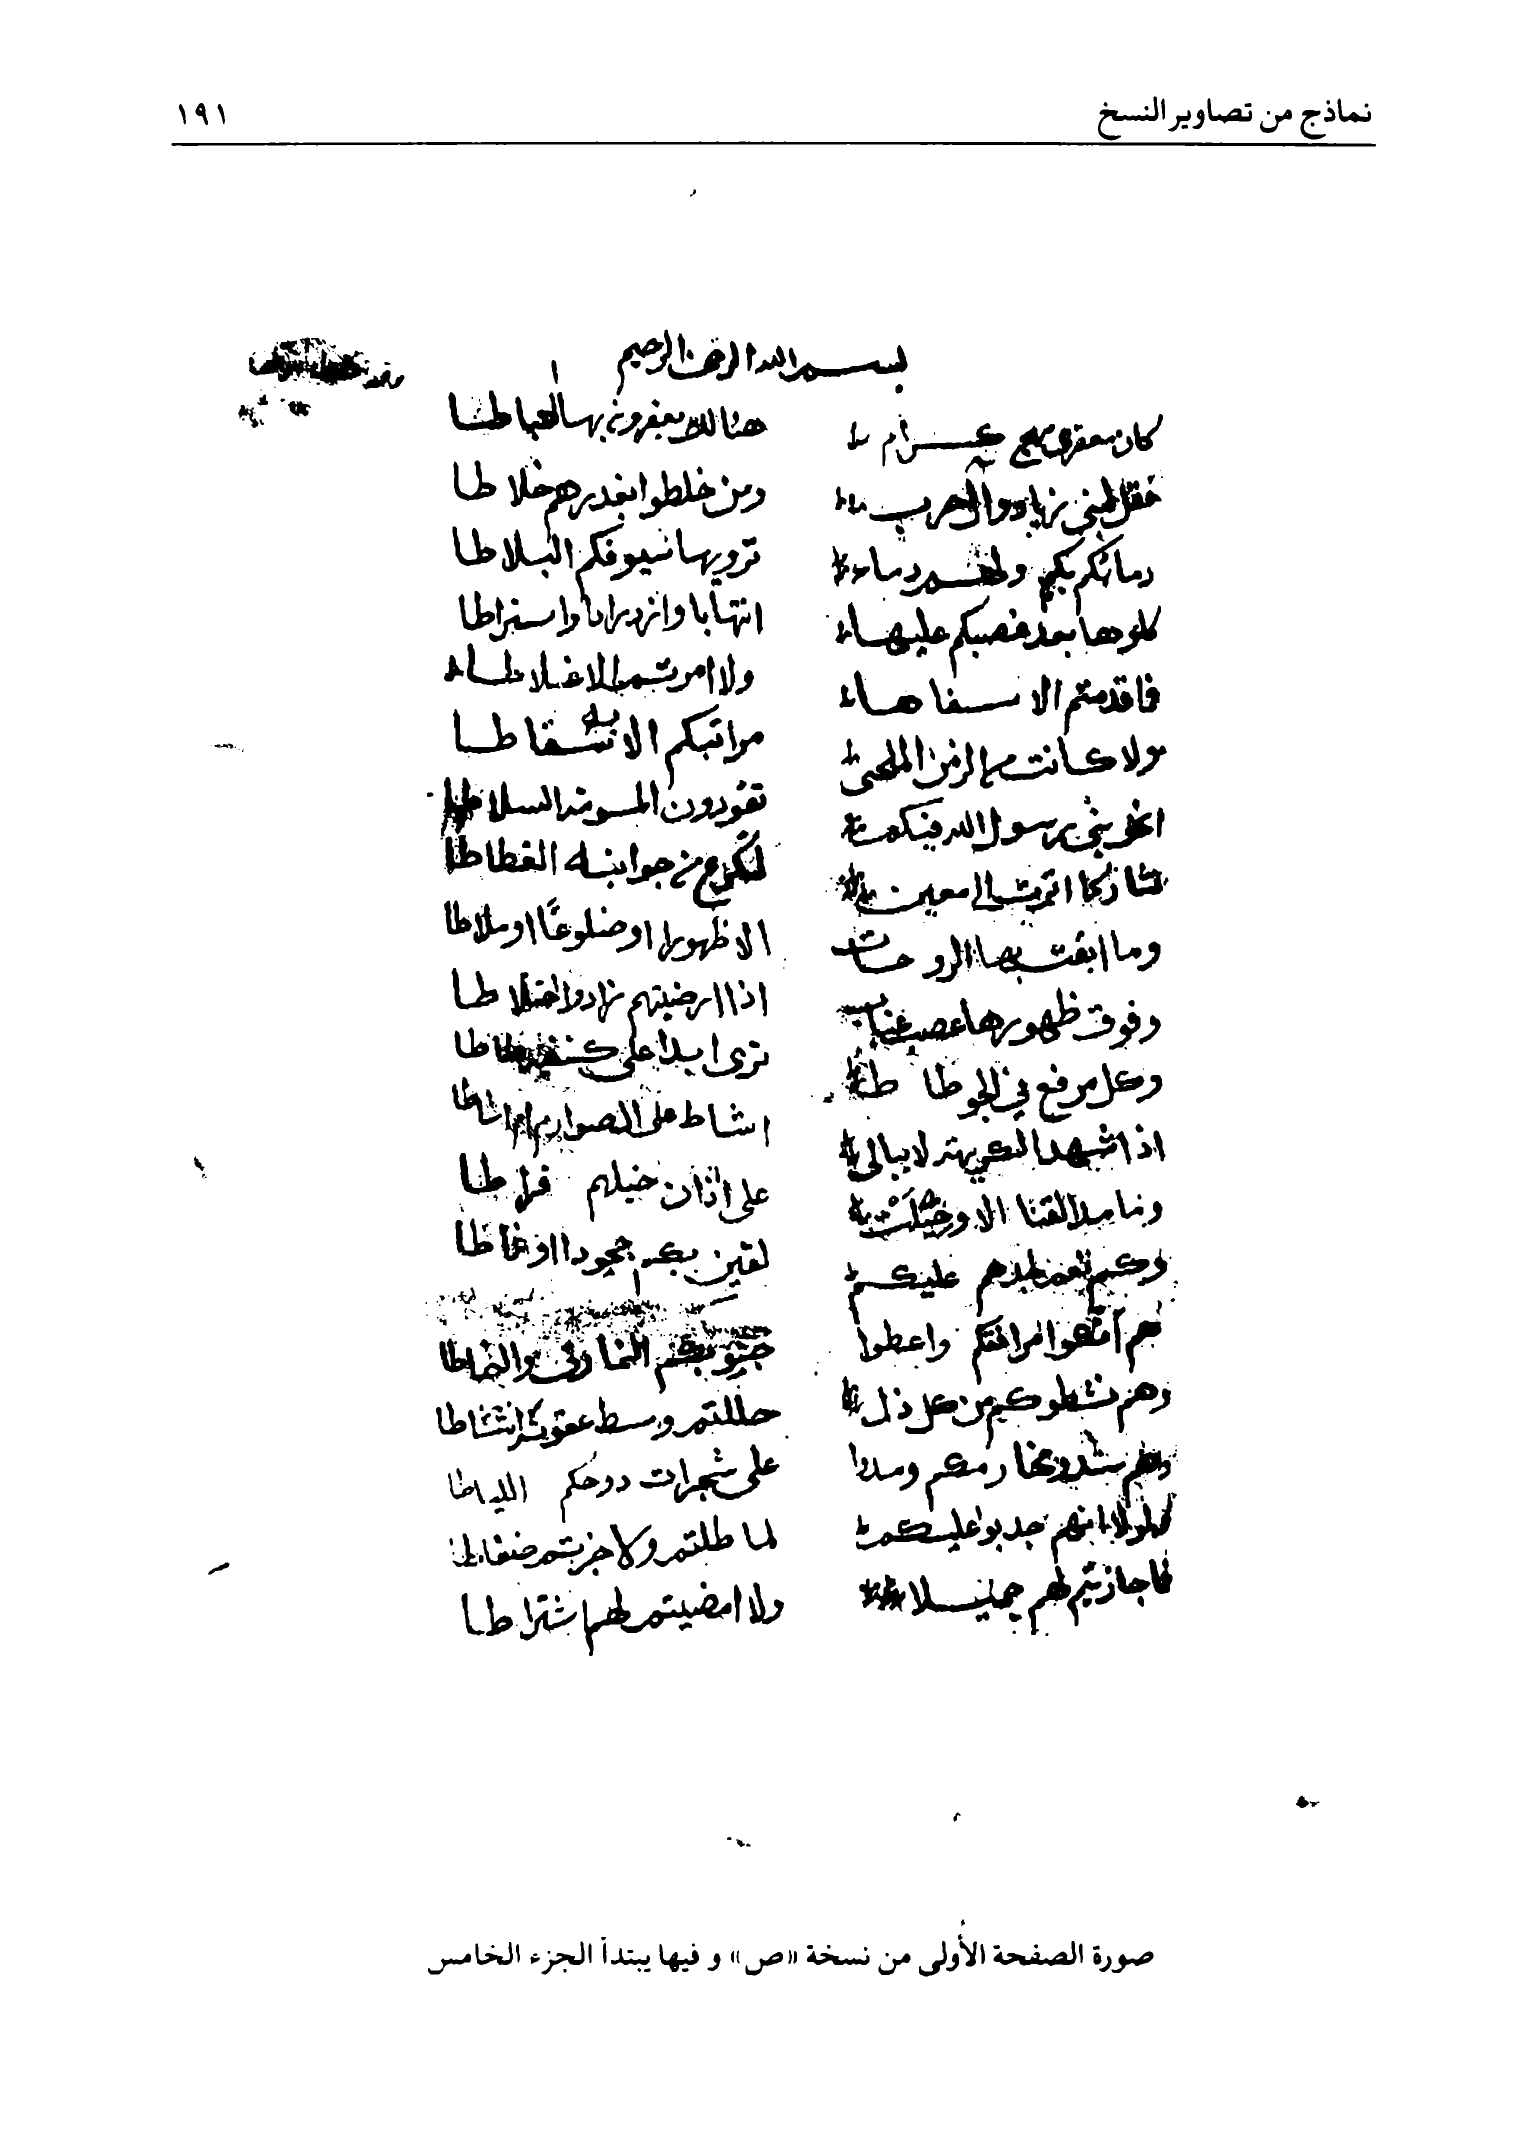 نماذج من تصاوير النسخ ١٩١
بسم الله الرحمن الرحيم
كان معقرى مهج كرام هنالك يعقرون بها العباطا
فقل لبنى زياد وال حرب ومن خلطوا بغدرهم خلاطا
دماؤكم بكم ولهم دماء ترويها سيوفكم البلاطا
كلوها بعد غصبكم عليها انتهابا وازدرادا واستراطا
فما قدمتم الا سفاها ولا امرتم الا غلاطا
ولا كانت من الزمن الملحى مراتبكم به الا سقاطا
انحو بنى رسول الله فيكم تقودون المسومة السلاطا
تثار كما اثرت الى معين لتكرع من جوانبه الغطاطا
وما ابقت بها الروحات الا ظهورا او ضلوعا او ملاطا
وفوق ظهورها عصب غضاب اذا ارضيتهم زادوا اختلاطا
وكل مرفع في الجو طاط ترى ابدا على كتفيه طاطا
اذا شهد الكريهة لا يبالى اشاط على الصوارم ام اشاطا
وما مد القنا الا وخيلت على اذان خيلهم قراطا
وكم نعم لجدهم عليكم لقين بكم جحودا او غماطا
هم اتكوا مرافقكم واعطوا جنوبكم النمارق والنماطا
وهم نشطوكم من كل ذل حللتم وسط عقوته انتشاطا
وهم سدوا مخارمكم ومدوا على شجرات دوحكم اللياطا
ولولا انهم حدبوا عليكم لما طلتم ولا حزتم ضغاطا
فما جازيتم لهم جميلا ولا امضيتم لهم اشتراطا
صورة الصفحة الأولى من نسخة «ص» و فيها يبتدأ الجزء الخامس